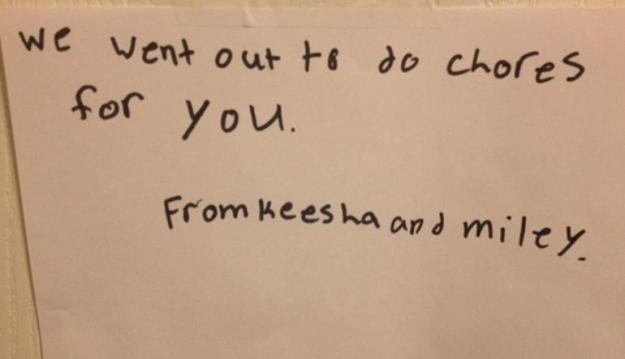 we went out to do chores
for you.
From Keesha and miley.